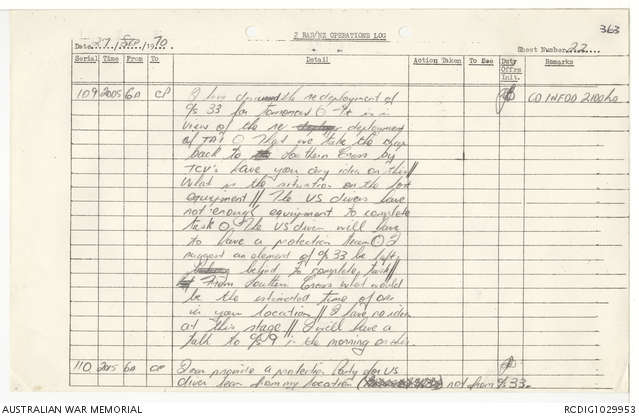 2 RAR/NZ OPERATIONS LOG
363
Date 27/Sep/1970
Sheet Number 22
Serial Time From To Detail Action Taken To See Duty Offrs Init. Remarks
109 2005 6A CP I have the redeployment of
CO INFOD 2100hrs
C/S 33 for tomorrow
view of the re deployment
of That we take the
back to Southern Cross by
TCV's have you any idea on this //
What is the situation on the lost
equipment // The US divers have
not enough equipment to complete
task O The US divers will have
to have a protection team O I
suggest an element of C/S 33 be left
behind to complete task //
From Southern Cross what would
be the estimated time of arr
in your location // I have no idea
at this stage // I will have a
talk to C/S 9 in the morning on this.
110 2015 6A CP I can provide a protection Party for US
diver team from my location not from C/S 33.
AUSTRALIAN WAR MEMORIAL
RCDIG1029953